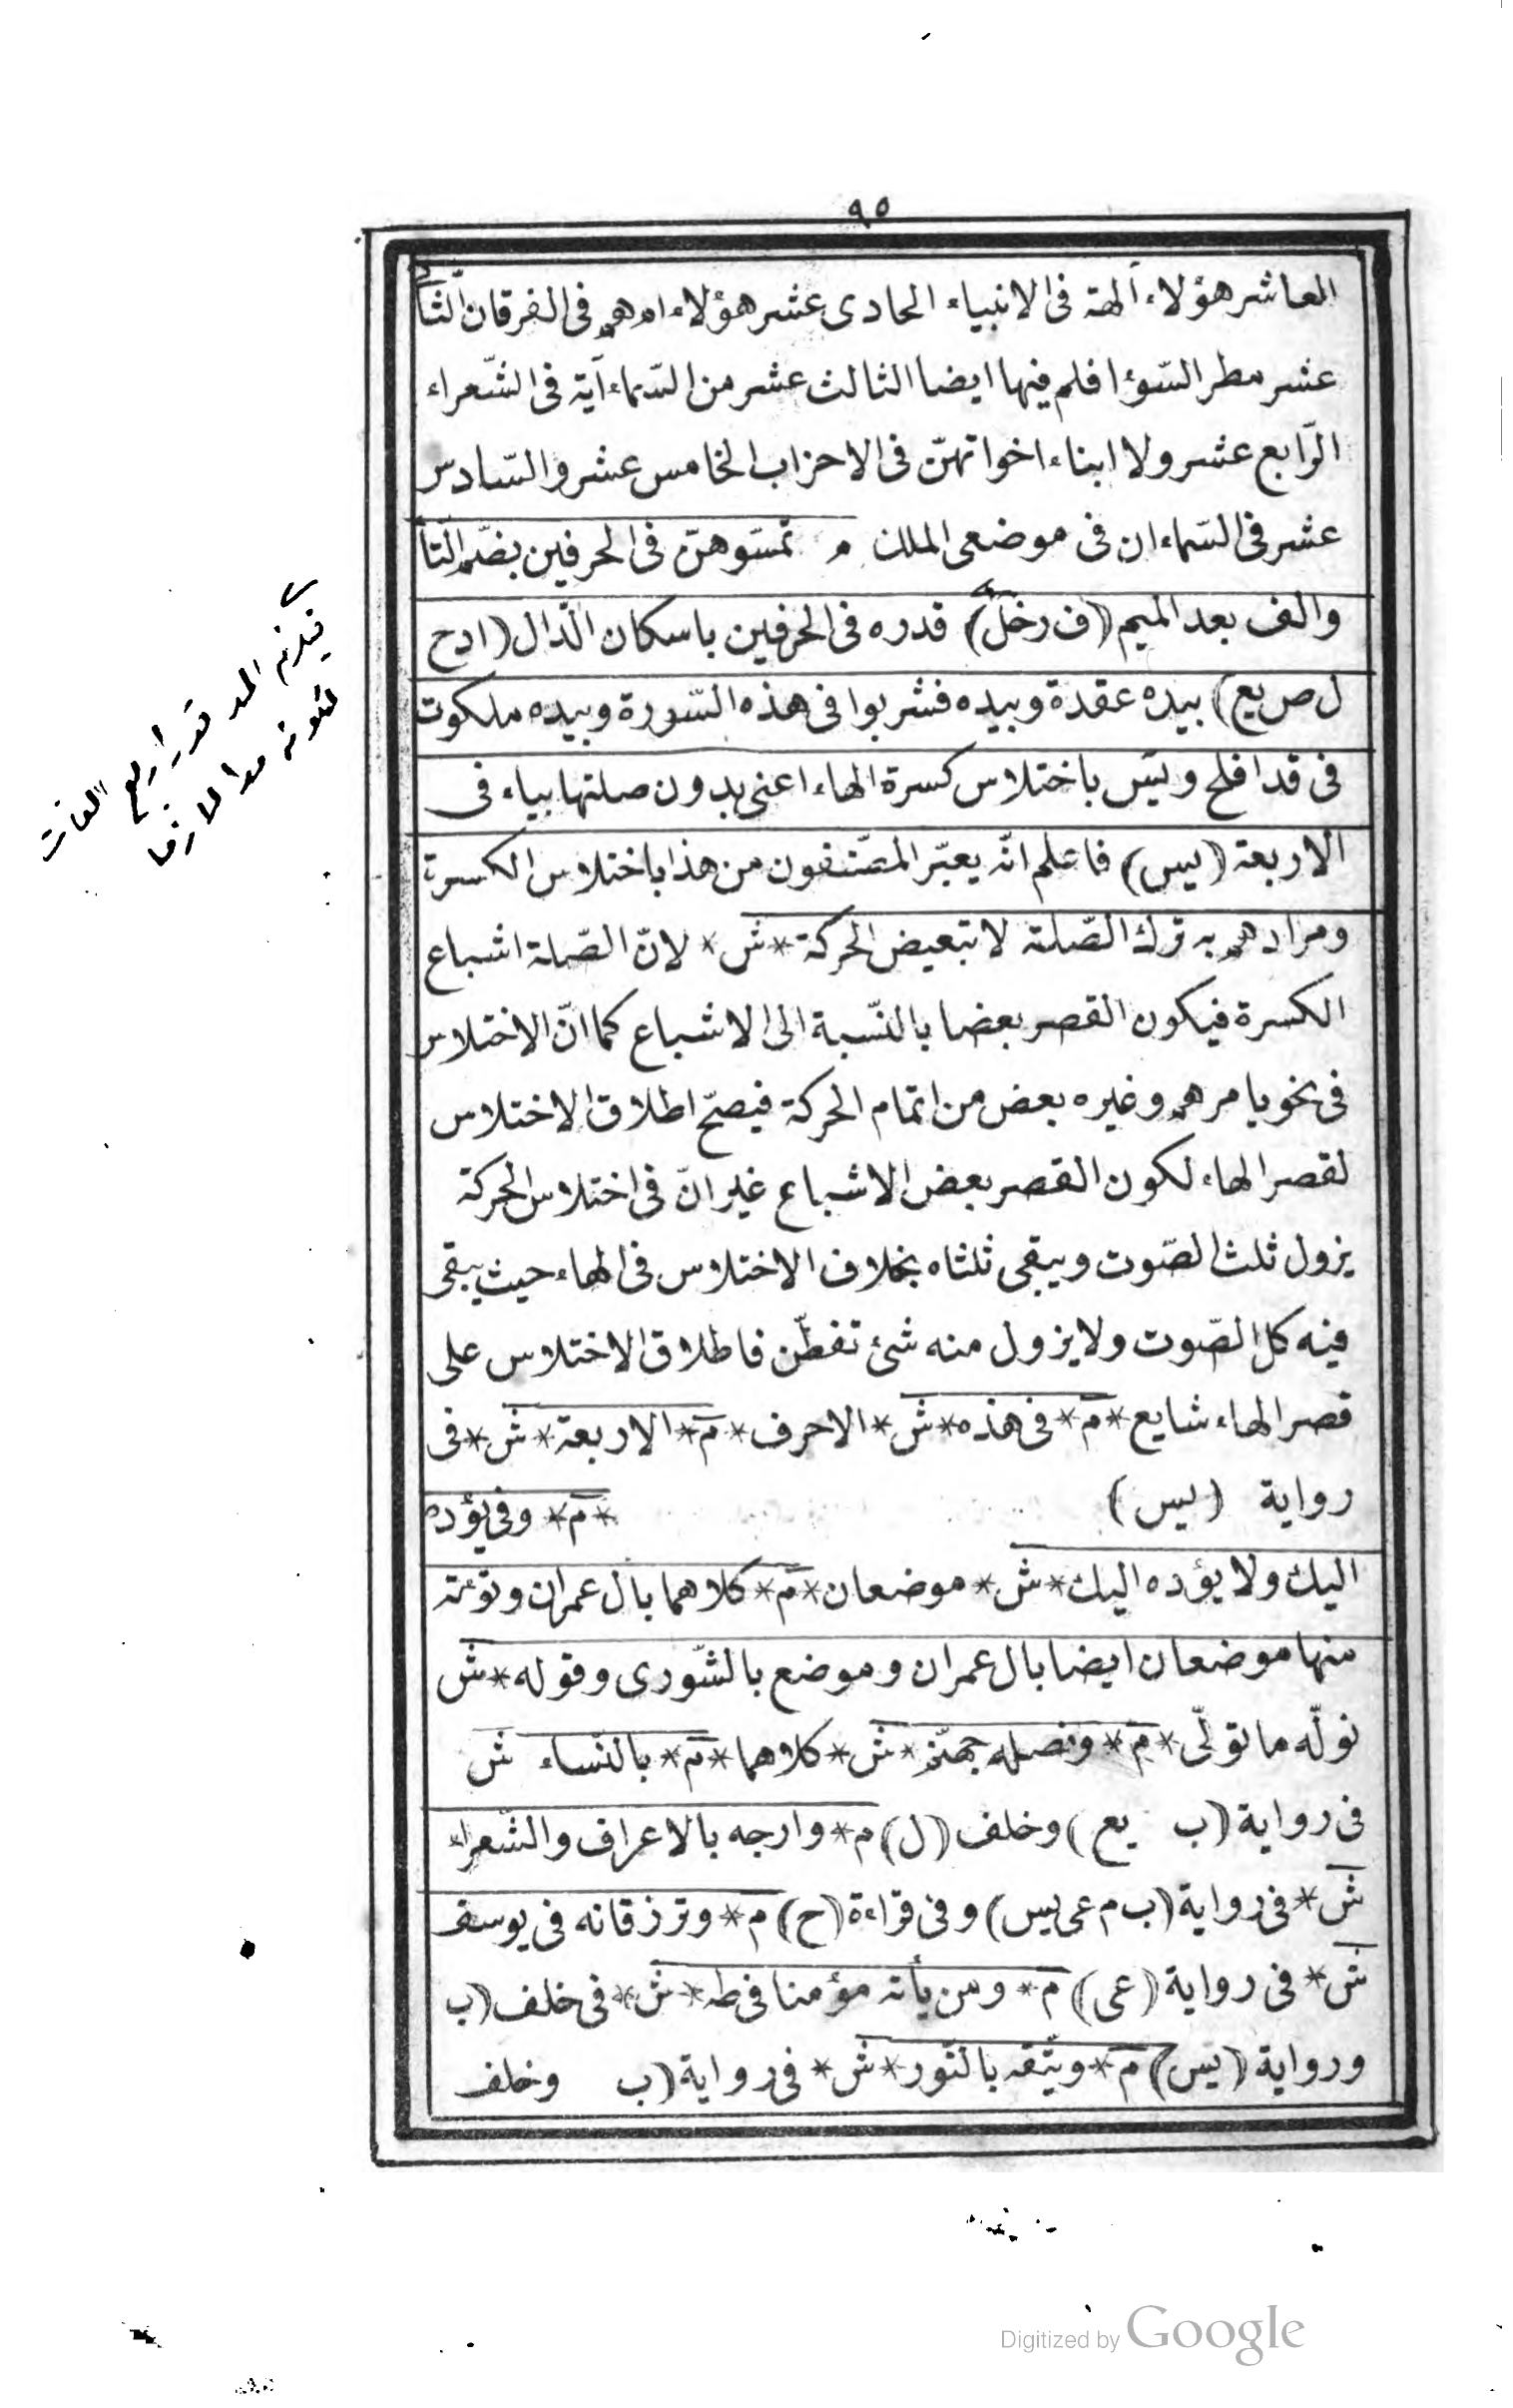 ٩٥
العاشر هؤلاء آلهة فى الانبياء الحادى عشر هؤلاء ام هم فى الفرقان الثّا
عشر مطر السّوء افلم فيها ايضا الثالث عشر من السّماء آية فى الشّعراء
الرّابع عشر ولا ابناء اخواتهنّ فى الاحزاب الخامس عشر والسّادس
عشر فى السّماء ان فى موضعى الملك م تمسّوهنّ فى الحرفين بضمّ التّا
والف بعد الميم (ف رخل) قدره فى الحرفين باسكان الدّال (ا د ح
ل ص يع) بيده عقدة وبيده فشربوا فى هذه السّورة وبيده ملكوت
فى قد افلح ويٓس باختلاس كسرة الهاء اعنى بدون صلتها بياء فى
الاربعة (يس) فاعلم انّه يعبّر المصّنفون من هذا باختلاس الكسرة
ومرادهم به ترك الصّلة لا تبعيض الحركة *ش* لانّ الصّلة اشباع
الكسرة فيكون القصر بعضا بالنّسبة الى الاشباع كما انّ الاختلاس
فى نحو يامرهم وغيره بعض من اتمام الحركة فيصحّ اطلاق الاختلاس
لقصر الهاء لكون القصر بعض الاشباع غير انّ فى اختلاس الحركة
يزول ثلث الصّوت ويبقى ثلثاه بخلاف الاختلاس فى الهاء حيث يبقى
فيه كل الصّوت ولا يزول منه شئ تفطّن فاطلاق الاختلاس على
قصر الهاء شايع *م* فى هذه *ش* الاحرف *م* الاربعة *ش* فى
رواية (يس) *م* وفى يؤده
اليك ولا يؤده اليك *ش* موضعان *م* كلاهما بال عمران ونؤته
منها موضعان ايضا بال عمران وموضع بالشّورى وقوله *ش
نولّه ما تولّى *م* ونصله جهنّم *ش* كلاهما *م* بالنّساء ش
فى رواية (ب يع) وخلف (ل) م* وارجه بالاعراف والشّعراء
ش* فى رواية (ب م عى يس) وفى قراءة (ح) م* وترزقانه فى يوسف
ش* فى رواية (عى) م* ومن يأته مؤمنا فى طه *ش* فى خلف (ب
ورواية (يس) م* ويتّقه بالنّور *ش* فى رواية (ب وخلف
فيلزم المد قدر اربع الفات
لكونه مدا لازما
Digitized by Google